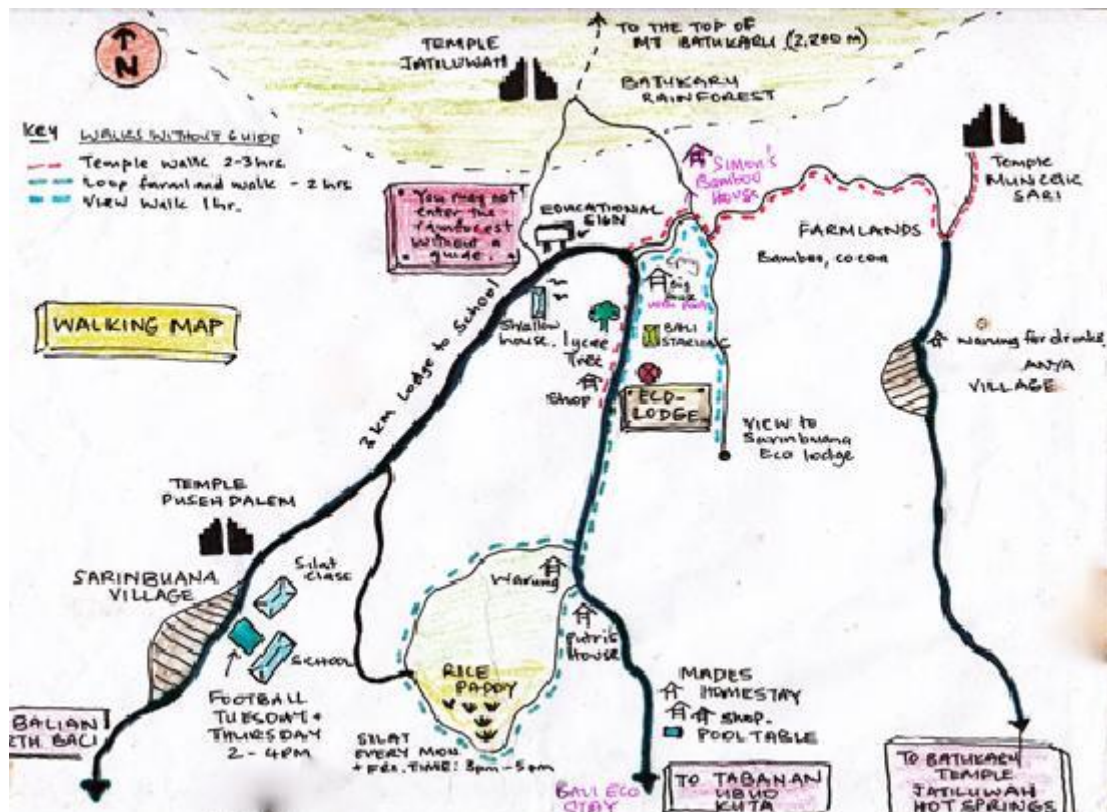 N
TO THE TOP OF
MT BATUKARU (2,200M)
TEMPLE
JATILUWAH
BATUKARU
RAINFOREST
Key WALKS WITHOUT GUIDE
Temple walk 2-3hrs.
Loop farmland walk - 2 hrs
View walk 1hr.
You may not
enter the
rainforest
without a
guide.
EDUCATIONAL
SIGN
SIMON'S
Bamboo
House
TEMPLE
MUNCUK
SARI
FARMLANDS
Bamboo, cocoa
WALKING MAP
3km Lodge to School
Swallow
house.
lycee
Tree
Shop
Big
BALI
STARLING
ECO-
LODGE
VIEW to
Sarinbuana
Eco lodge
warung for drinks
ANYA
VILLAGE
TEMPLE
PUSEH DALEM
SARINBUANA
VILLAGE
Silat
class
SCHOOL
FOOTBALL
TUESDAY +
THURSDAY
2 - 4PM
Warung
Putri's
House
RICE
PADDY
SILAT
EVERY MON
+ FRI. TIME: 3pm - 5pm
MADES
HOMESTAY
Shop.
POOL TABLE
BALIAN
RTH BALI
BALI ECO
STAY
TO TABANAN
UBUD
KUTA
TO BATUKARU
TEMPLE
JATILUWAH
HOT SPRINGS